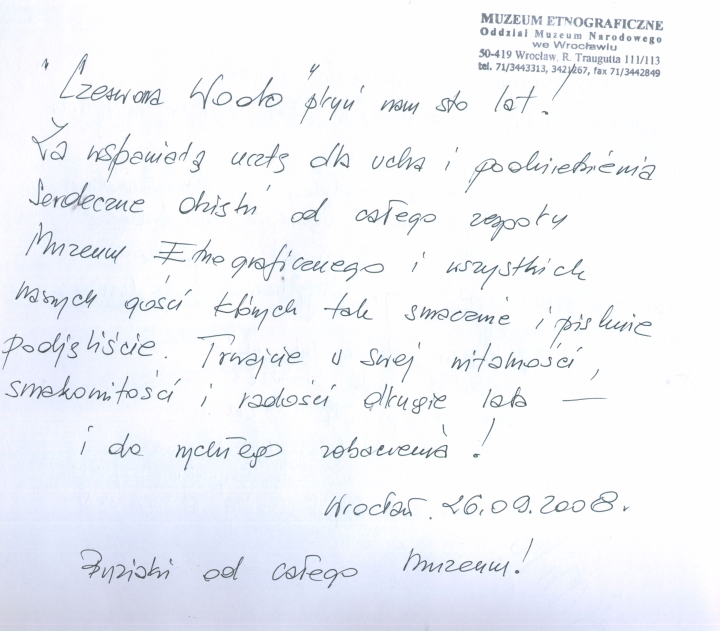 MUZEUM ETNOGRAFICZNE
Oddział Muzeum Narodowego
we Wrocławiu
50-419 Wrocław, R. Traugutta 111/113
tel. 71/3443313, 3421267, fax 71/3442849
"Czerwona Woda" płyń nam sto lat!
Za wspaniałą ucztę dla ucha i podniebienia
Serdeczne dzięki od całego zespołu
Muzeum Etnograficznego i wszystkich
naszych gości których tak smacznie i pięknie
podjęliście. Trwajcie w swej witalności,
smakowitości i radości długie lata —
i do rychłego zobaczenia!
Wrocław. 26.09.2008.
Buziaki od całego Muzeum!